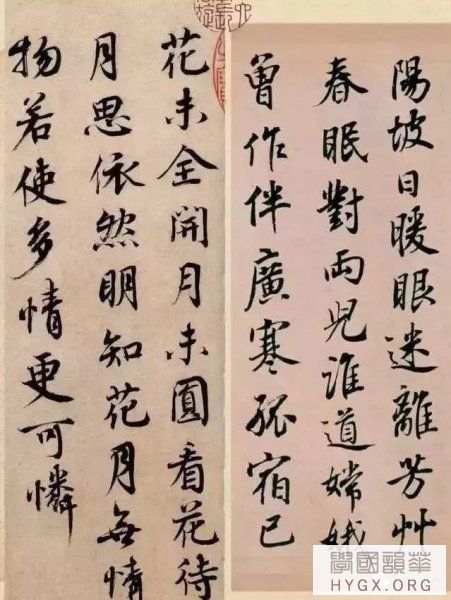 陽坡日暖眼迷離芳艸
春眠對兩兒誰道嫦娥
曾作伴廣寒孤宿已
花未全開月未圓看花待
月思依然明知花月無情
物若使多情更可憐
華韻國學
HYGX.ORG